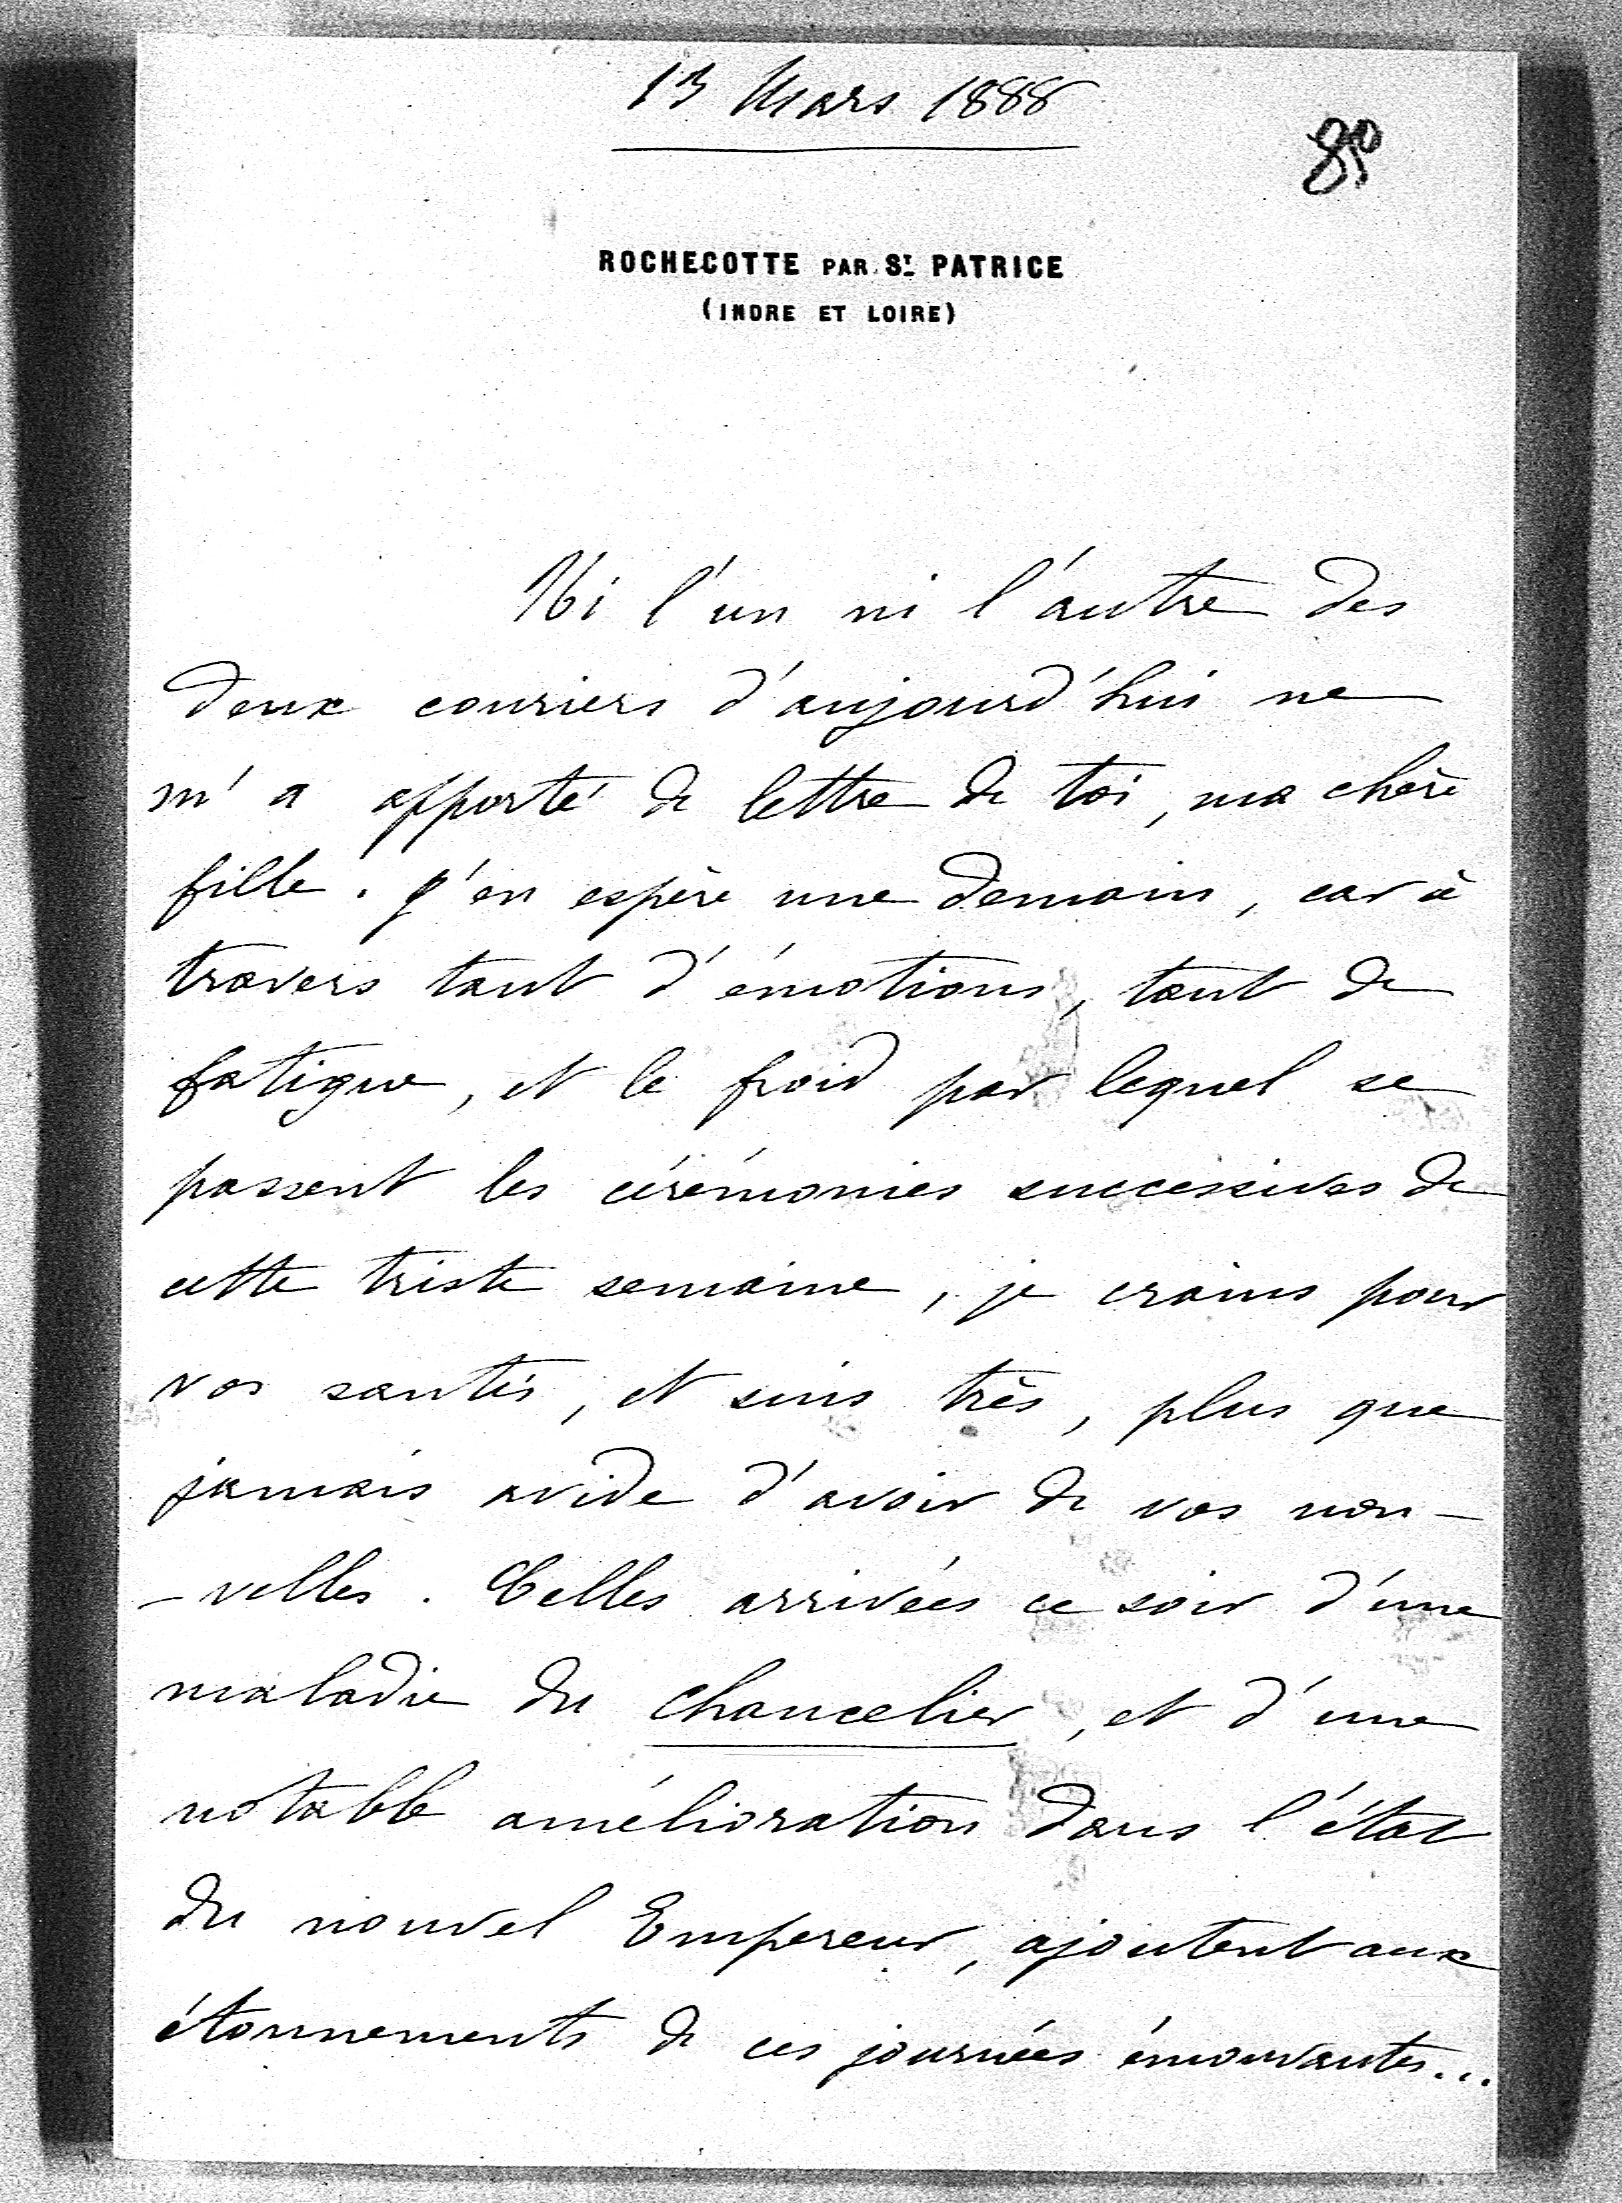 13 Mars 1888
ROCHECOTTE PAR ST PATRICE
(INDRE ET LOIRE)
Ni l'un ni l'autre des
deux couriers d'aujourd'hui ne
m'a apporté de lettre de toi, ma chère
fille. J'en espère une demain, car à
travers tant d'émotions, tant de
fatigue, et le froid par lequel se
passent les cérémonies successives de
cette triste semaine, je crains pour
vos santés, et suis très, plus que
jamais avide d'avoir de vos nou-
-velles. Celles arrivées ce soir d'une
maladie du chancelier, et d'une
notable amélioration dans l'état
du nouvel Empereur, ajoutent aux
étonnements de ces journées émouvantes...